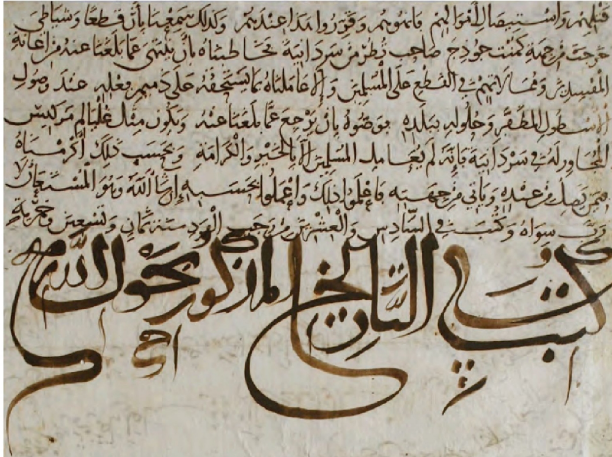 واستيصال اقوالهم وقرروا هذا عندهم وكذلك سمعنا بأن قطعا وشياطى
خرجت من جهة كنت جودج صاحب من سردانية يخاطبناه بأن ينتهى عما بلغنا عنه من اعانة
المفسدين فى القطع على المسلمين والا عاملناه بما يستحقه على ذميم فعله عند وصول
الاسطول المظفر وحلوله ببلده بأن يرجع عما بلغنا عنه ويكون مثل غليالم مركيس
المجاور له فى سردانية فإنه لم يعامل المسلمين الا بالخير والكرامة وبحسب ذلك اكرمناه
فيمن يصل من عنده وياتى من جهته فاعلموا ذلك واعملوا بحسبه ان شا الله وهو المستعان لا
رب سواه وكتب فى السادس والعشرين من رجب الفرد سنة ثمان وتسعين
كتب فى التاريخ المذكور بحول الله